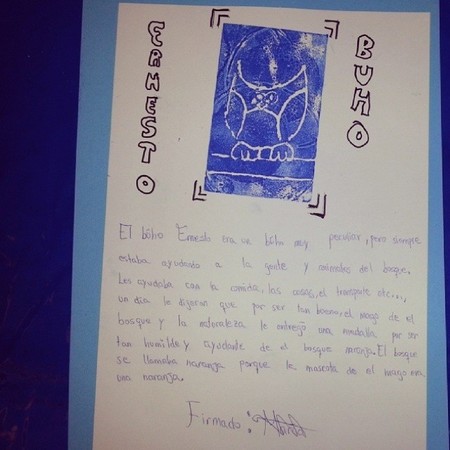 ERNESTO
BUHO
El búho Ernesto era un búho muy peculiar, pero siempre
estaba ayudando a la gente y animales del bosque.
Les ayudaba con la comida, las casas, el transporte etc...,
un dia le dijeron que por ser tan bueno, el mago de el
bosque y la naturaleza le entregó una medalla por ser
tan humilde y ayudante de el bosque naranja. El bosque
se llamaba naranja porque la mascota de el mago era
una naranja.
Firmado: